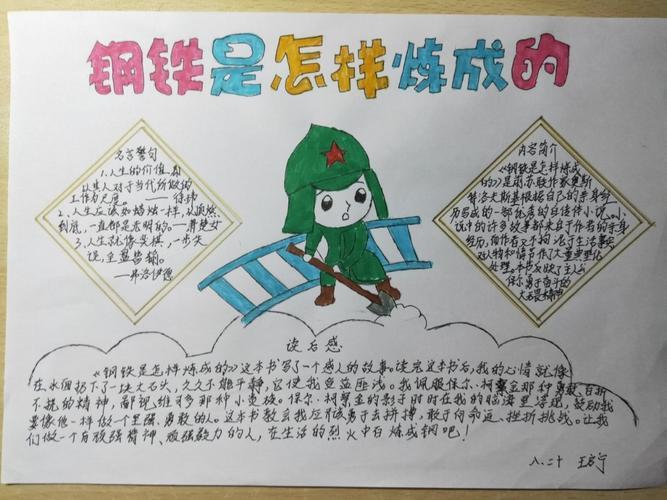 钢铁是怎样炼成的
名言警句
1.人生的价值,由
以其人对于当代所做的
工作为尺度。——徐玮
2、人生应该如蜡烛一样,从顶燃
到底,一直都是光明的。——萧楚女
3、人生就像奕棋,一步失
误,全盘皆输。
——弗洛伊德
内容简介
《钢铁是怎样炼成
的》是前苏联作家奥斯
特洛夫斯基根据自己的亲身经
历写成的一部优秀的自传体小说。小
说中的许多故事都来自于作者的亲身
经历,但作者又不拘泥于生活事实
对人物和情节作了大量典型化
处理。
读后感
《钢铁是怎样炼成的》这本书写了一个感人的故事。读完这本书后,我的心情就像
在水面扔下了一块大石头,久久不能平静,它使我受益匪浅。我佩服保尔·柯察金那种勇敢、百折
不挠的精神,鄙视维可多那种小贵族。保尔·柯察金的影子时时在我的脑海里浮现,鼓励我
要像他一样做一个坚强、勇敢的人。这本书教会我应该勇于去拼搏,敢于向命运、挫折挑战。让我
们做一个有顽强精神、顽强毅力的人,在生活的烈火中百炼成钢吧!
八.二十 王